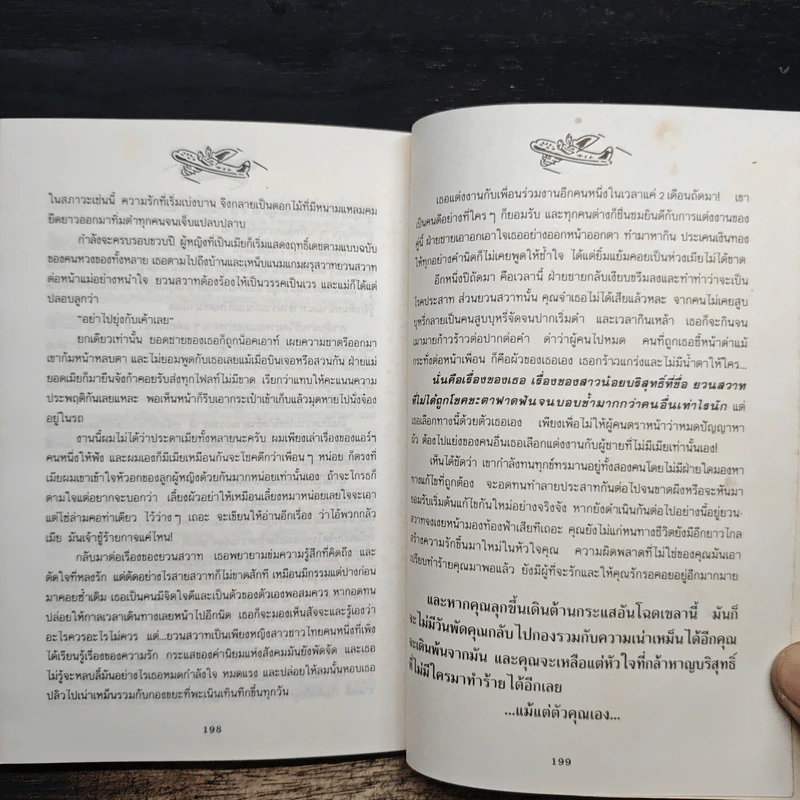 ในสภาวะเช่นนี้ ความรักที่เริ่มเบ่งบาน จึงกลายเป็นดอกไม้ที่มีหนามแหลมคม
ยืดยาวออกมาทิ่มตำทุกคนจนเจ็บแปลบปลาบ
กำลังจะครบรอบขวบปี ผู้หญิงที่เป็นเมียก็เริ่มแสดงฤทธิ์เดชตามแบบฉบับ
ของคนหวงของทั้งหลาย เธอตามไปถึงบ้านและเหน็บแนมแกมผรุสวาทยวนสวาท
ต่อหน้าแม่อย่างหนำใจ ยวนสวาทต้องร้องไห้เป็นวรรคเป็นเวร และแม่ก็ได้แต่
ปลอบลูกว่า
"อย่าไปยุ่งกับเค้าเลย"
ยกเดียวเท่านั้น ยอดชายของเธอก็ถูกน็อคเอาท์ เผยความขาดรีออกมา
เขาก้มหน้าหลบตา และไม่ยอมพูดกับเธอเลยแม้เมื่อบินเจอหรือสวนกัน ฝ่ายแม่
ยอดเมียก็มายืนจังก้าคอยรับส่งทุกไฟลท์ไม่มีขาด เรียกว่าแทบให้คะแนนความ
ประพฤติกันเลยแหละ พอเห็นหน้าก็รีบเอากระเป๋าเข้าเก็บแล้วมุดหายไปนั่งจ๋อง
อยู่ในรถ
งานนี้ผมไม่ได้ว่าประดาเมียทั้งหลายนะครับ ผมเพียงเล่าเรื่องของแอร์ฯ
คนหนึ่งให้ฟัง และผมเองก็มีเมียเหมือนกันจะโชคดีกว่าเพื่อนๆ หน่อย ก็ตรงที่
เมียผมเขาเข้าใจหัวอกของลูกผู้หญิงด้วยกันมากหน่อยเท่านั้นเอง ถ้าจะโกรธก็
ตามใจแต่อยากจะบอกว่า เลี้ยงผัวอย่าให้เหมือนเลี้ยงหมาหน่อยเลยใจจะเอา
แต่โซ่ล่ามคอท่าเดียว ไว้ว่างๆ เถอะ จะเขียนให้อ่านอีกเรื่อง ว่าไอ้พวกกลัว
เมีย มันเจ้าชู้ร้ายกาจแค่ไหน!
กลับมาต่อเรื่องของยวนสวาท เธอพยายามข่มความรู้สึกที่คิดถึง และ
ตัดใจที่หลงรัก แต่ตัดอย่างไรสายสวาทก็ไม่ขาดสักที เหมือนมีกรรมแต่ปางก่อน
มาคอยซ้ำเติม เธอเป็นคนมีจิตใจดีและเป็นตัวของตัวเองพอสมควร หากอดทน
ปล่อยให้กาลเวลาเดินทางเลยหน้าไปอีกนิด เธอก็จะมองเห็นสัจจะและรู้เองว่า
อะไรควรอะไรไม่ควร แต่...ยวนสวาทเป็นเพียงหญิงสาวชาวไทยคนหนึ่งที่เพิ่ง
ได้เรียนรู้เรื่องของความรัก กระแสของค่านิยมแห่งสังคมมันยังพัดจัด และเธอ
ไม่รู้จะหลบลี้มันอย่างไรเธอหมดกำลังใจ หมดแรง และปล่อยให้ลมนั้นหอบเธอ
ปลิวไปเน่าเหม็นรวมกับกองขยะที่พะเนินเทินทึกขึ้นทุกวัน
198
เธอแต่งงานกับเพื่อนร่วมงานอีกคนหนึ่งในเวลาแค่ 2 เดือนถัดมา! เขา
เป็นคนดีอย่างที่ใครๆ ก็ยอมรับ และทุกคนต่างก็ชื่นชมยินดีกับการแต่งงานของ
คู่นี้ ฝ่ายชายเอาอกเอาใจเธออย่างออกหน้าออกตา ทำมาหากิน ประเคนเงินทอง
ให้ทุกอย่างคำนิดก็ไม่เคยพูดให้ช้ำใจ ได้แต่ยิ้มแย้มคอยเป็นห่วงเมียไม่ได้ขาด
อีกหนึ่งปีถัดมา คือเวลานี้ ฝ่ายชายกลับเงียบขรึมลงและทำท่าว่าจะเป็น
โรคประสาท ส่วนยวนสวาทนั้น คุณจำเธอไม่ได้เสียแล้วหละ จากคนไม่เคยสูบ
บุหรี่กลายเป็นคนสูบบุหรี่จัดจนปากเริ่มดำ และเวลากินเหล้า เธอก็จะกินจน
เมามายก้าวร้าวต่อปากต่อคำ ด่าว่าผู้คนไปหมด คนที่ถูกเธอชี้หน้าด่าแม้
กระทั่งต่อหน้าเพื่อน ก็คือผัวของเธอเอง เธอกร้าวแกร่งและไม่มีน้ำตาให้ใคร...
นั่นคือเรื่องของเธอ เรื่องของสาวน้อยบริสุทธิ์ที่ชื่อ ยวนสวาท
ที่ไม่ได้ถูกโชคชะตาฟาดฟันจนบอบช้ำมากกว่าคนอื่นเท่าไรนัก แต่
เธอเลือกทางนี้ด้วยตัวเธอเอง เพียงเพื่อไม่ให้ผู้คนตราหน้าว่าหมดปัญญาหา
ผัว ต้องไปแย่งของคนอื่นเธอเลือกแต่งงานกับผู้ชายที่ไม่มีเมียเท่านั้นเอง!
เห็นได้ชัดว่า เขากำลังทนทุกข์ทรมานอยู่ทั้งสองคนโดยไม่มีฝ่ายใดมองหา
ทางแก้ไขที่ถูกต้อง จะอดทนทำลายประสาทกันต่อไปจนขาดผึงหรือจะหันมา
ยอมรับเริ่มต้นแก้ไขกันใหม่อย่างจริงจัง หากยังดำเนินกันต่อไปอย่างนี้อยู่ยวน-
สวาทจงเงยหน้ามองท้องฟ้าเสียทีเถอะ คุณยังไม่แก่หนทางชีวิตยังมีอีกยาวไกล
สร้างความรักขึ้นมาใหม่ในหัวใจคุณ ความผิดพลาดที่ไม่ใช่ของคุณมันเอา
เปรียบทำร้ายคุณมาพอแล้ว ยังมีผู้ที่จะรักและให้คุณรักรอคอยอยู่อีกมากมาย
และหากคุณลุกขึ้นเดินต้านกระแสอันโฉดเขลานี้ มันก็
จะไม่มีวันพัดคุณกลับ ไปกองรวมกับความเน่าเหม็น ได้อีกคุณ
จะเดินพ้นจากมัน และคุณจะเหลือแต่หัวใจที่กล้าหาญบริสุทธิ์
ที่ไม่มีใครมาทำร้าย ได้อีกเลย
...แม้แต่ตัวคุณเอง...
199